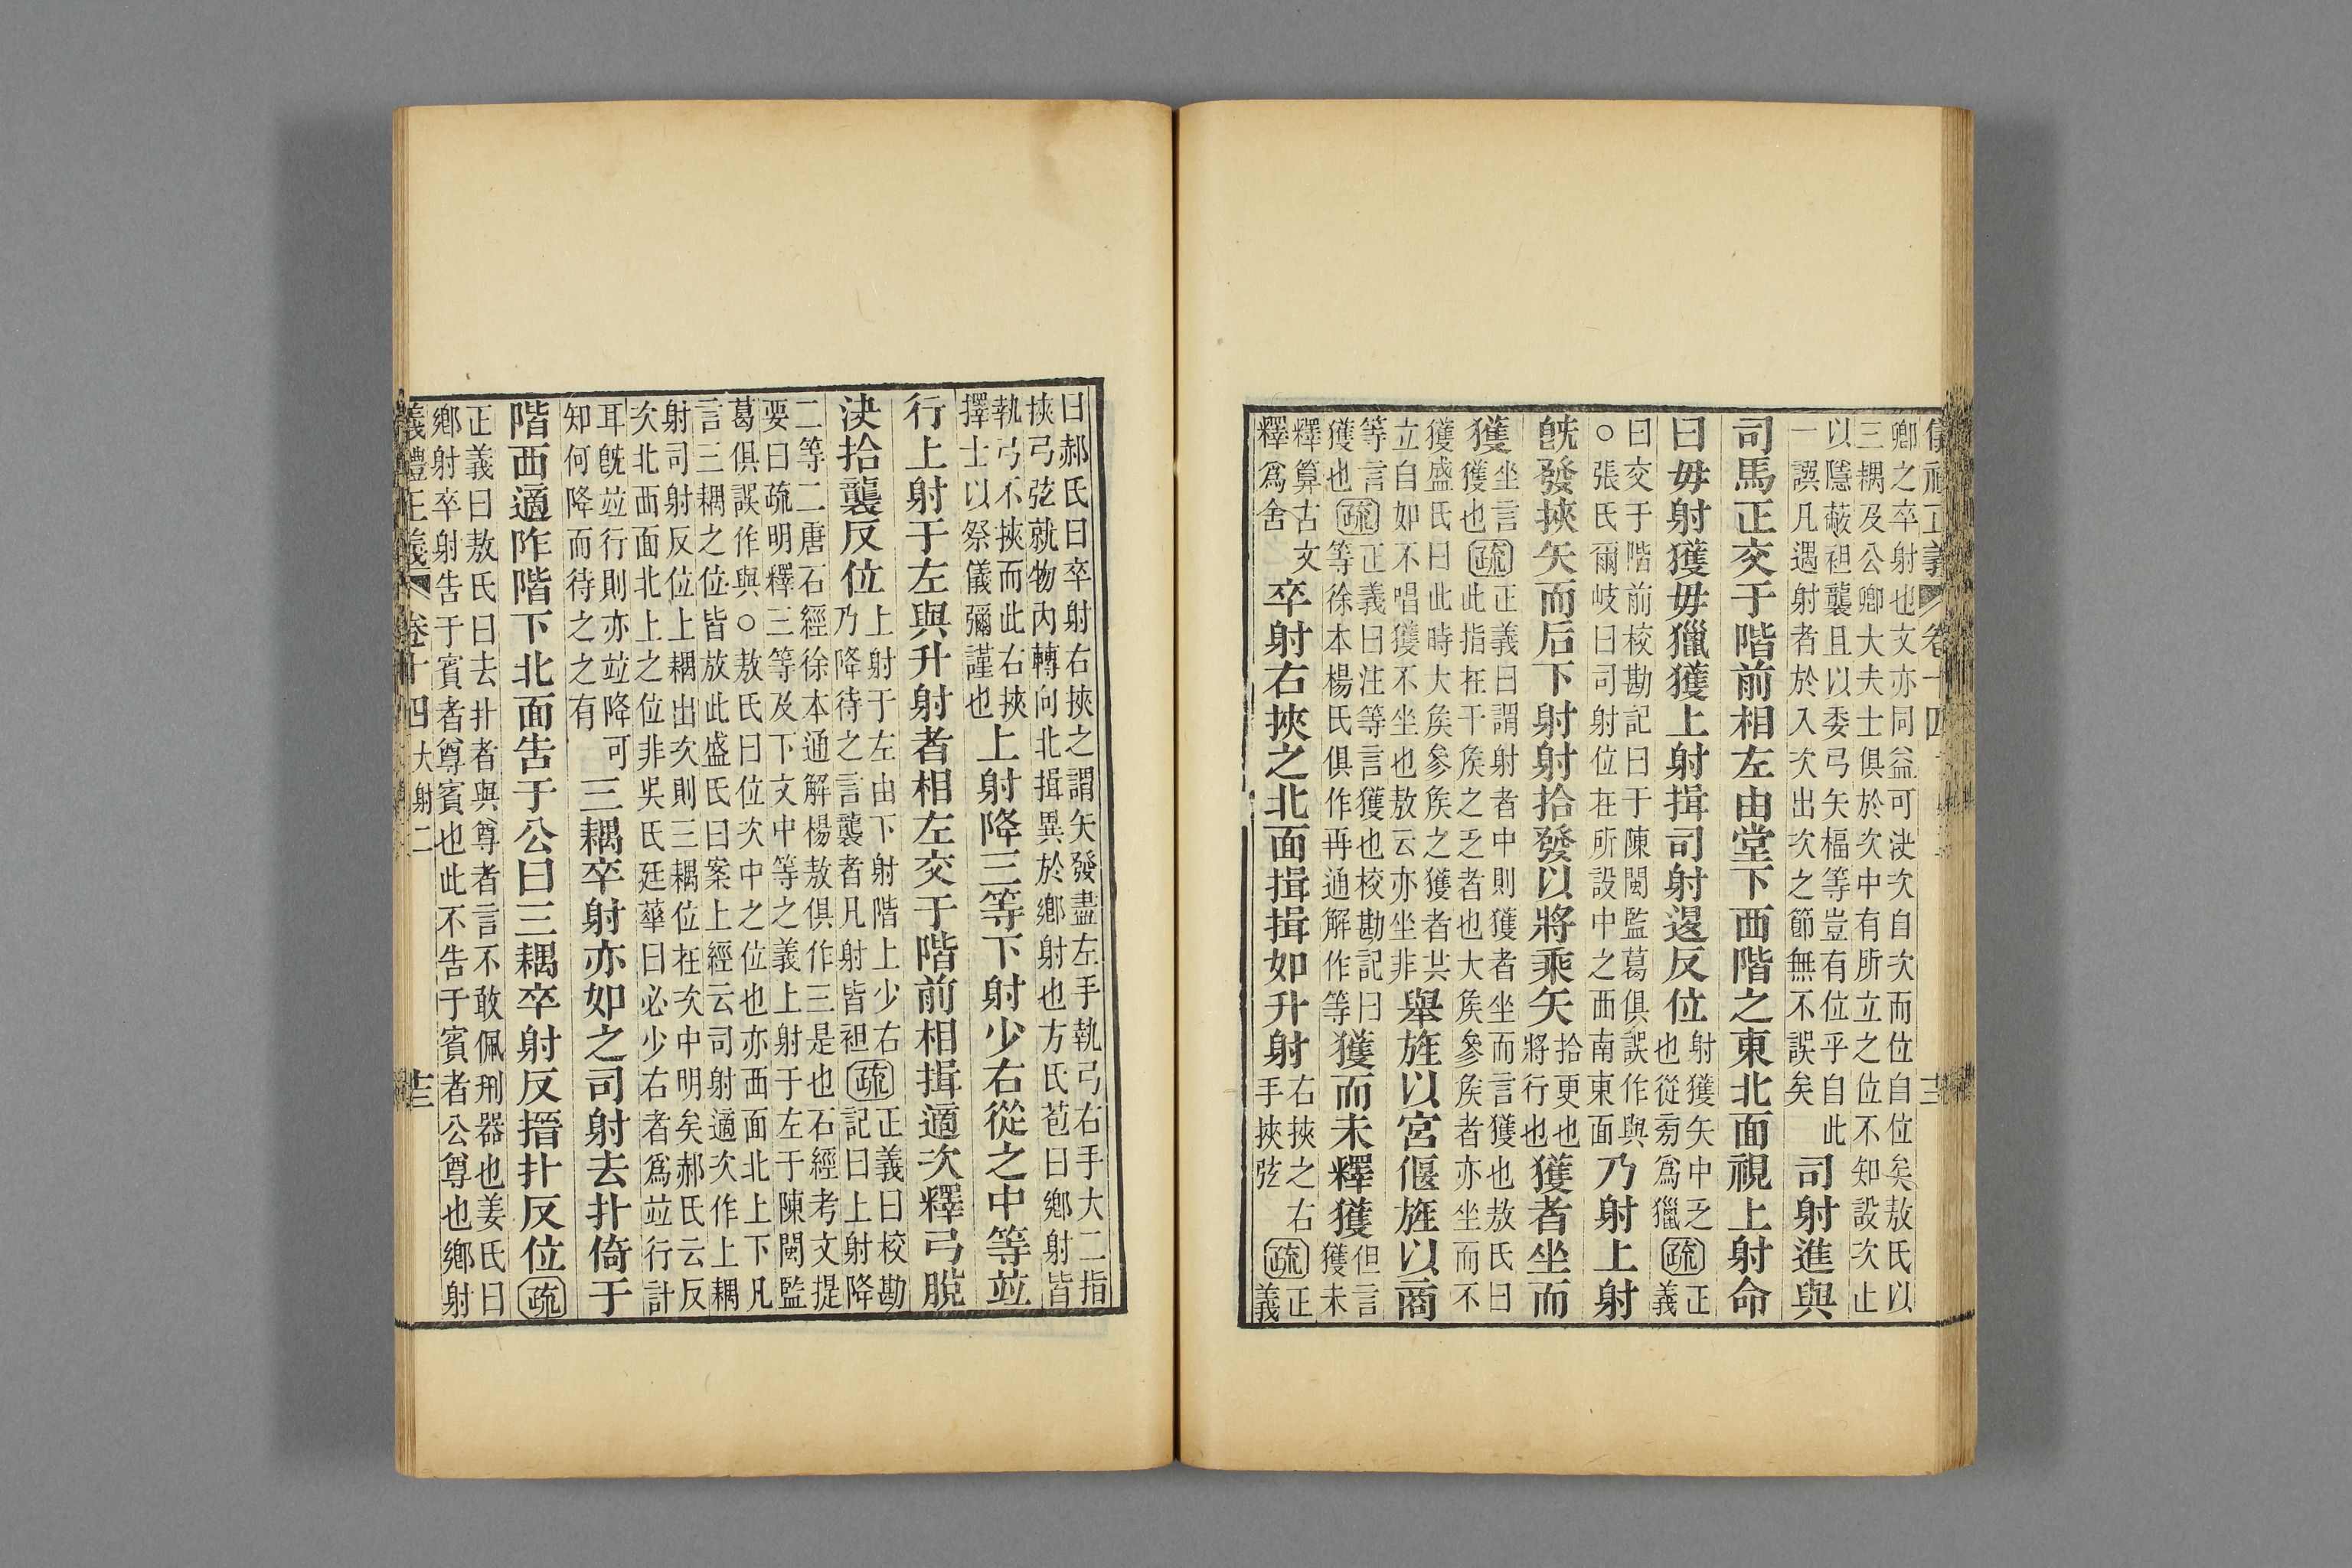 儀禮正義 卷十四
卿之卒射也文亦同益可決次自次而位自位矣敖氏以
三耦及公卿大夫士俱於次中有所立之位不知設次止
以隱蔽袒襲且以委弓矢楅等豈有位乎自此
一誤凡遇射者於入次出次之節無不誤矣
司射進與
司馬正交于階前相左由堂下西階之東北面視上射命
曰毋射獲毋獵獲上射揖司射退反位
射獲矢中乏
也從旁爲獵
疏
正
義
曰交于階前校勘記曰于陳閩監葛俱誤作與
○張氏爾岐曰司射位在所設中之西南東面
乃射上射
旣發挾矢而后下射射拾發以將乘矢
拾更也
將行也
獲者坐而
獲
坐言
獲也
疏
正義曰謂射者中則獲者坐而言獲也敖氏曰
此指在干矦之乏者也大矦參矦者亦坐而不
獲盛氏曰此時大矦參矦之獲者其
立自如不唱獲不坐也敖云亦坐非
舉旌以宮偃旌以商
等言
獲也
疏
正義曰注等言獲也校勘記曰
等徐本楊氏俱作再通解作等
獲而未釋獲
但言
獲未
釋算古文
釋爲舍
卒射右挾之北面揖揖如升射
右挾之右
手挾弦
疏
正
義
曰郝氏曰卒射右挾之謂矢發盡左手執弓右手大二指
挾弓弦就物內轉向北揖異於鄉射也方氏苞曰鄉射皆
執弓不挾而此右挾
擇士以祭儀彌謹也
上射降三等下射少右從之中等竝
行上射于左與升射者相左交于階前相揖適次釋弓脫
決拾襲反位
上射于左由下射階上少右
乃降待之言襲者凡射皆袒
疏
正義曰校勘
記曰上射降
二等二唐石經徐本通解楊敖俱作三是也石經考文提
要曰疏明釋三等及下文中等之義上射于左于陳閩監
葛俱誤作與○敖氏曰位次中之位也亦西面北上下凡
言三耦之位皆放此盛氏曰案上經云司射適次作上耦
射司射反位上耦出次則三耦位在次中明矣郝氏云反
次北西面北上之位非吳氏廷華曰必少右者爲竝行計
耳旣竝行則亦竝降可
知何降而待之之有
三耦卒射亦如之司射去扑倚于
階西適阼階下北面告于公曰三耦卒射反搢扑反位
疏
正義曰敖氏曰去扑者與尊者言不敢佩刑器也姜氏曰
鄉射卒射告于賓者尊賓也此不告于賓者公尊也鄉射
儀禮正義 卷十四 大射二